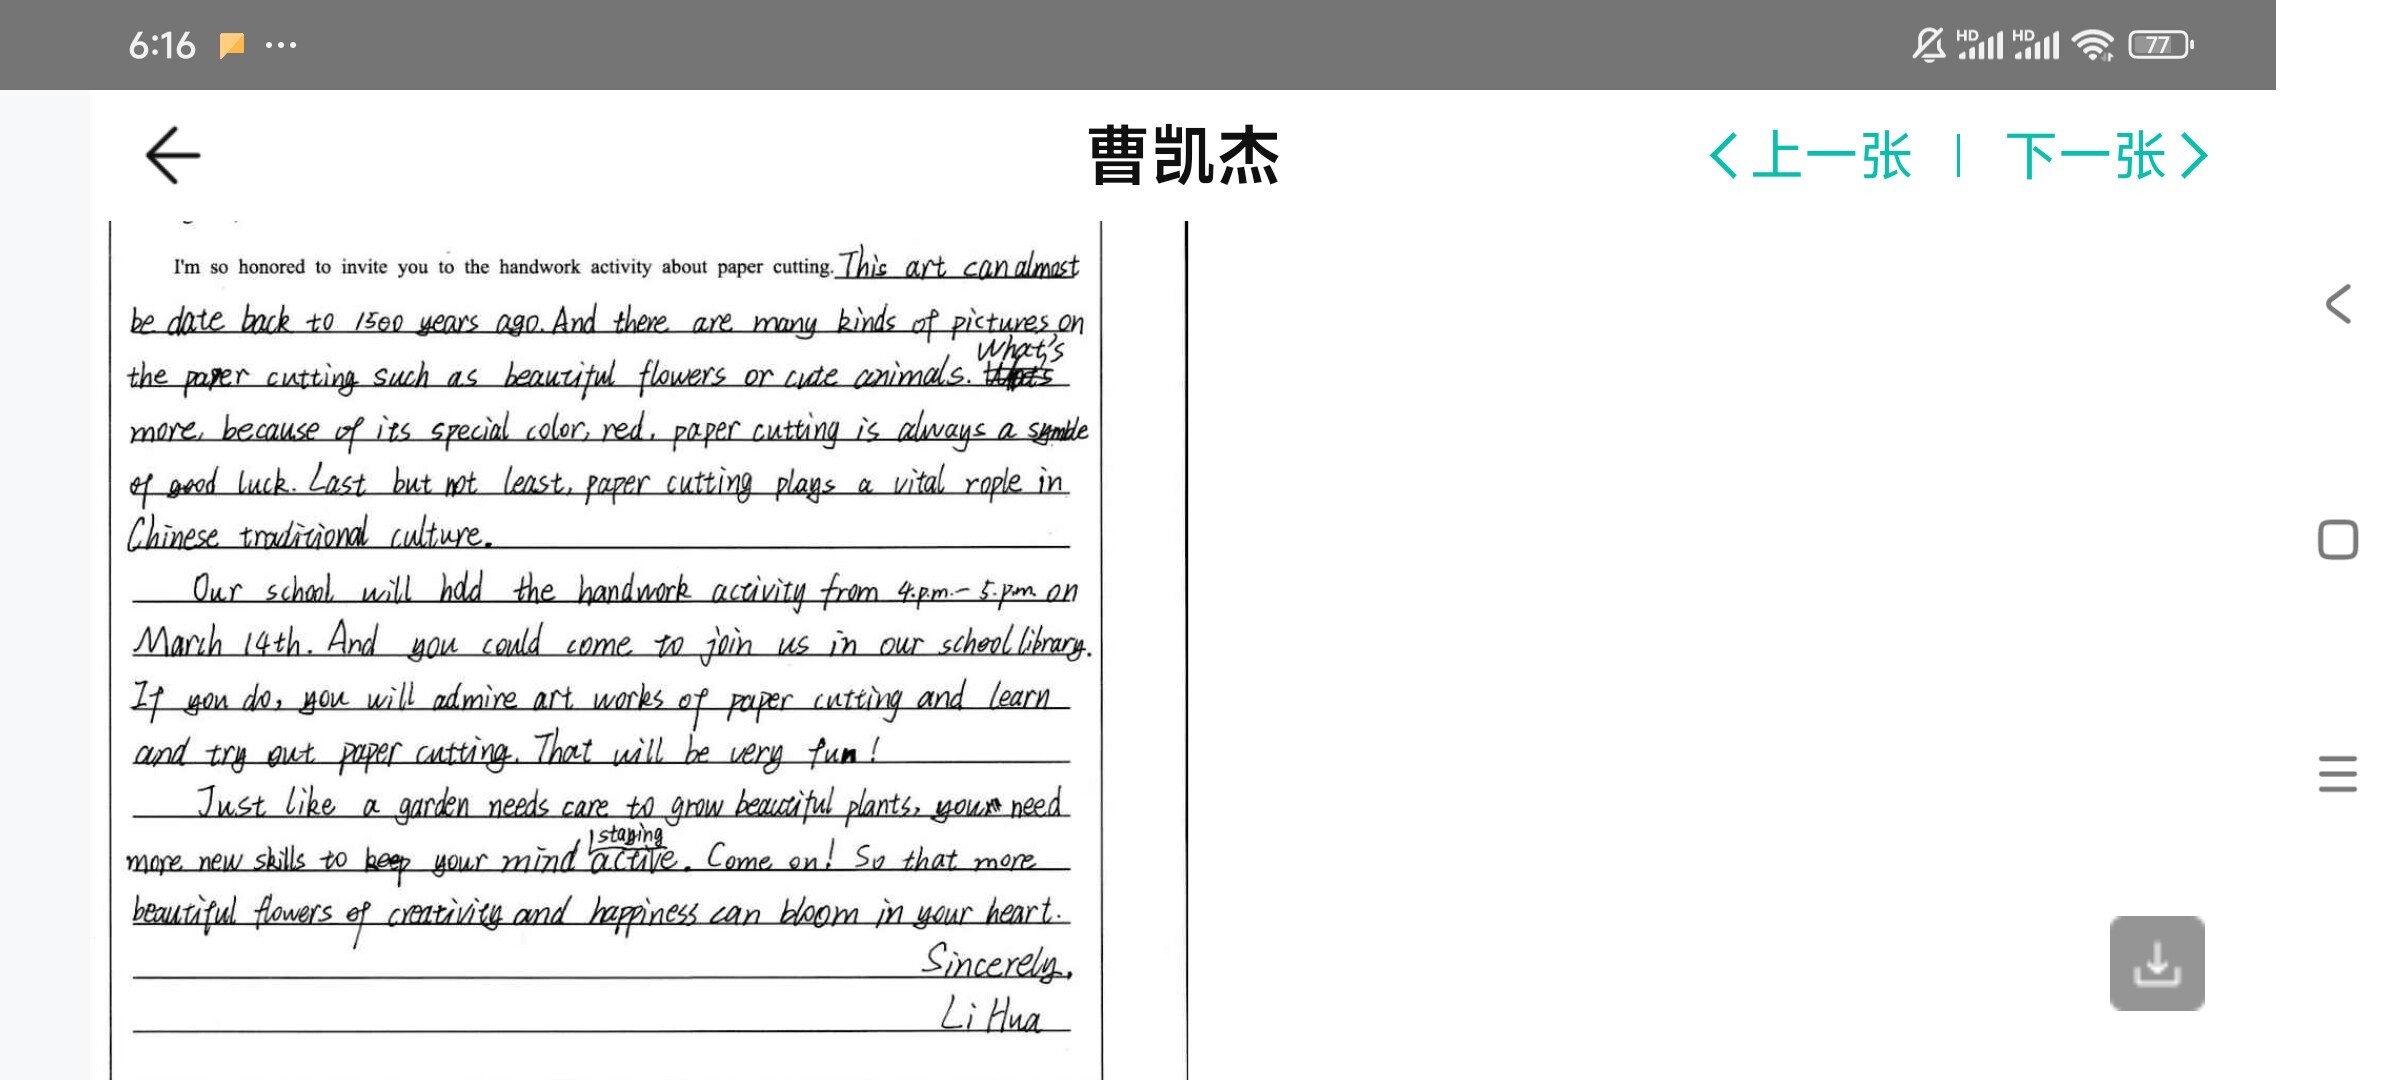 6:16 ... HD HD 77
曹凯杰
上一张 | 下一张
I'm so honored to invite you to the handwork activity about paper cutting. This art can almost
be date back to 1500 years ago. And there are many kinds of pictures on
What's
the paper cutting such as beautiful flowers or cute animals.
more, because of its special color, red, paper cutting is always a symble
of good luck. Last but not least, paper cutting plays a vital rople in
Chinese traditional culture.
Our school will hold the handwork activity from 4.p.m.- 5.p.m. on
March 14th. And you could come to join us in our school library.
If you do, you will admire art works of paper cutting and learn
and try out paper cutting. That will be very fun!
Just like a garden needs care to grow beautiful plants, you need
staying
more new skills to keep your mind active. Come on! So that more
beautiful flowers of creativity and happiness can bloom in your heart.
Sincerely,
Li Hua